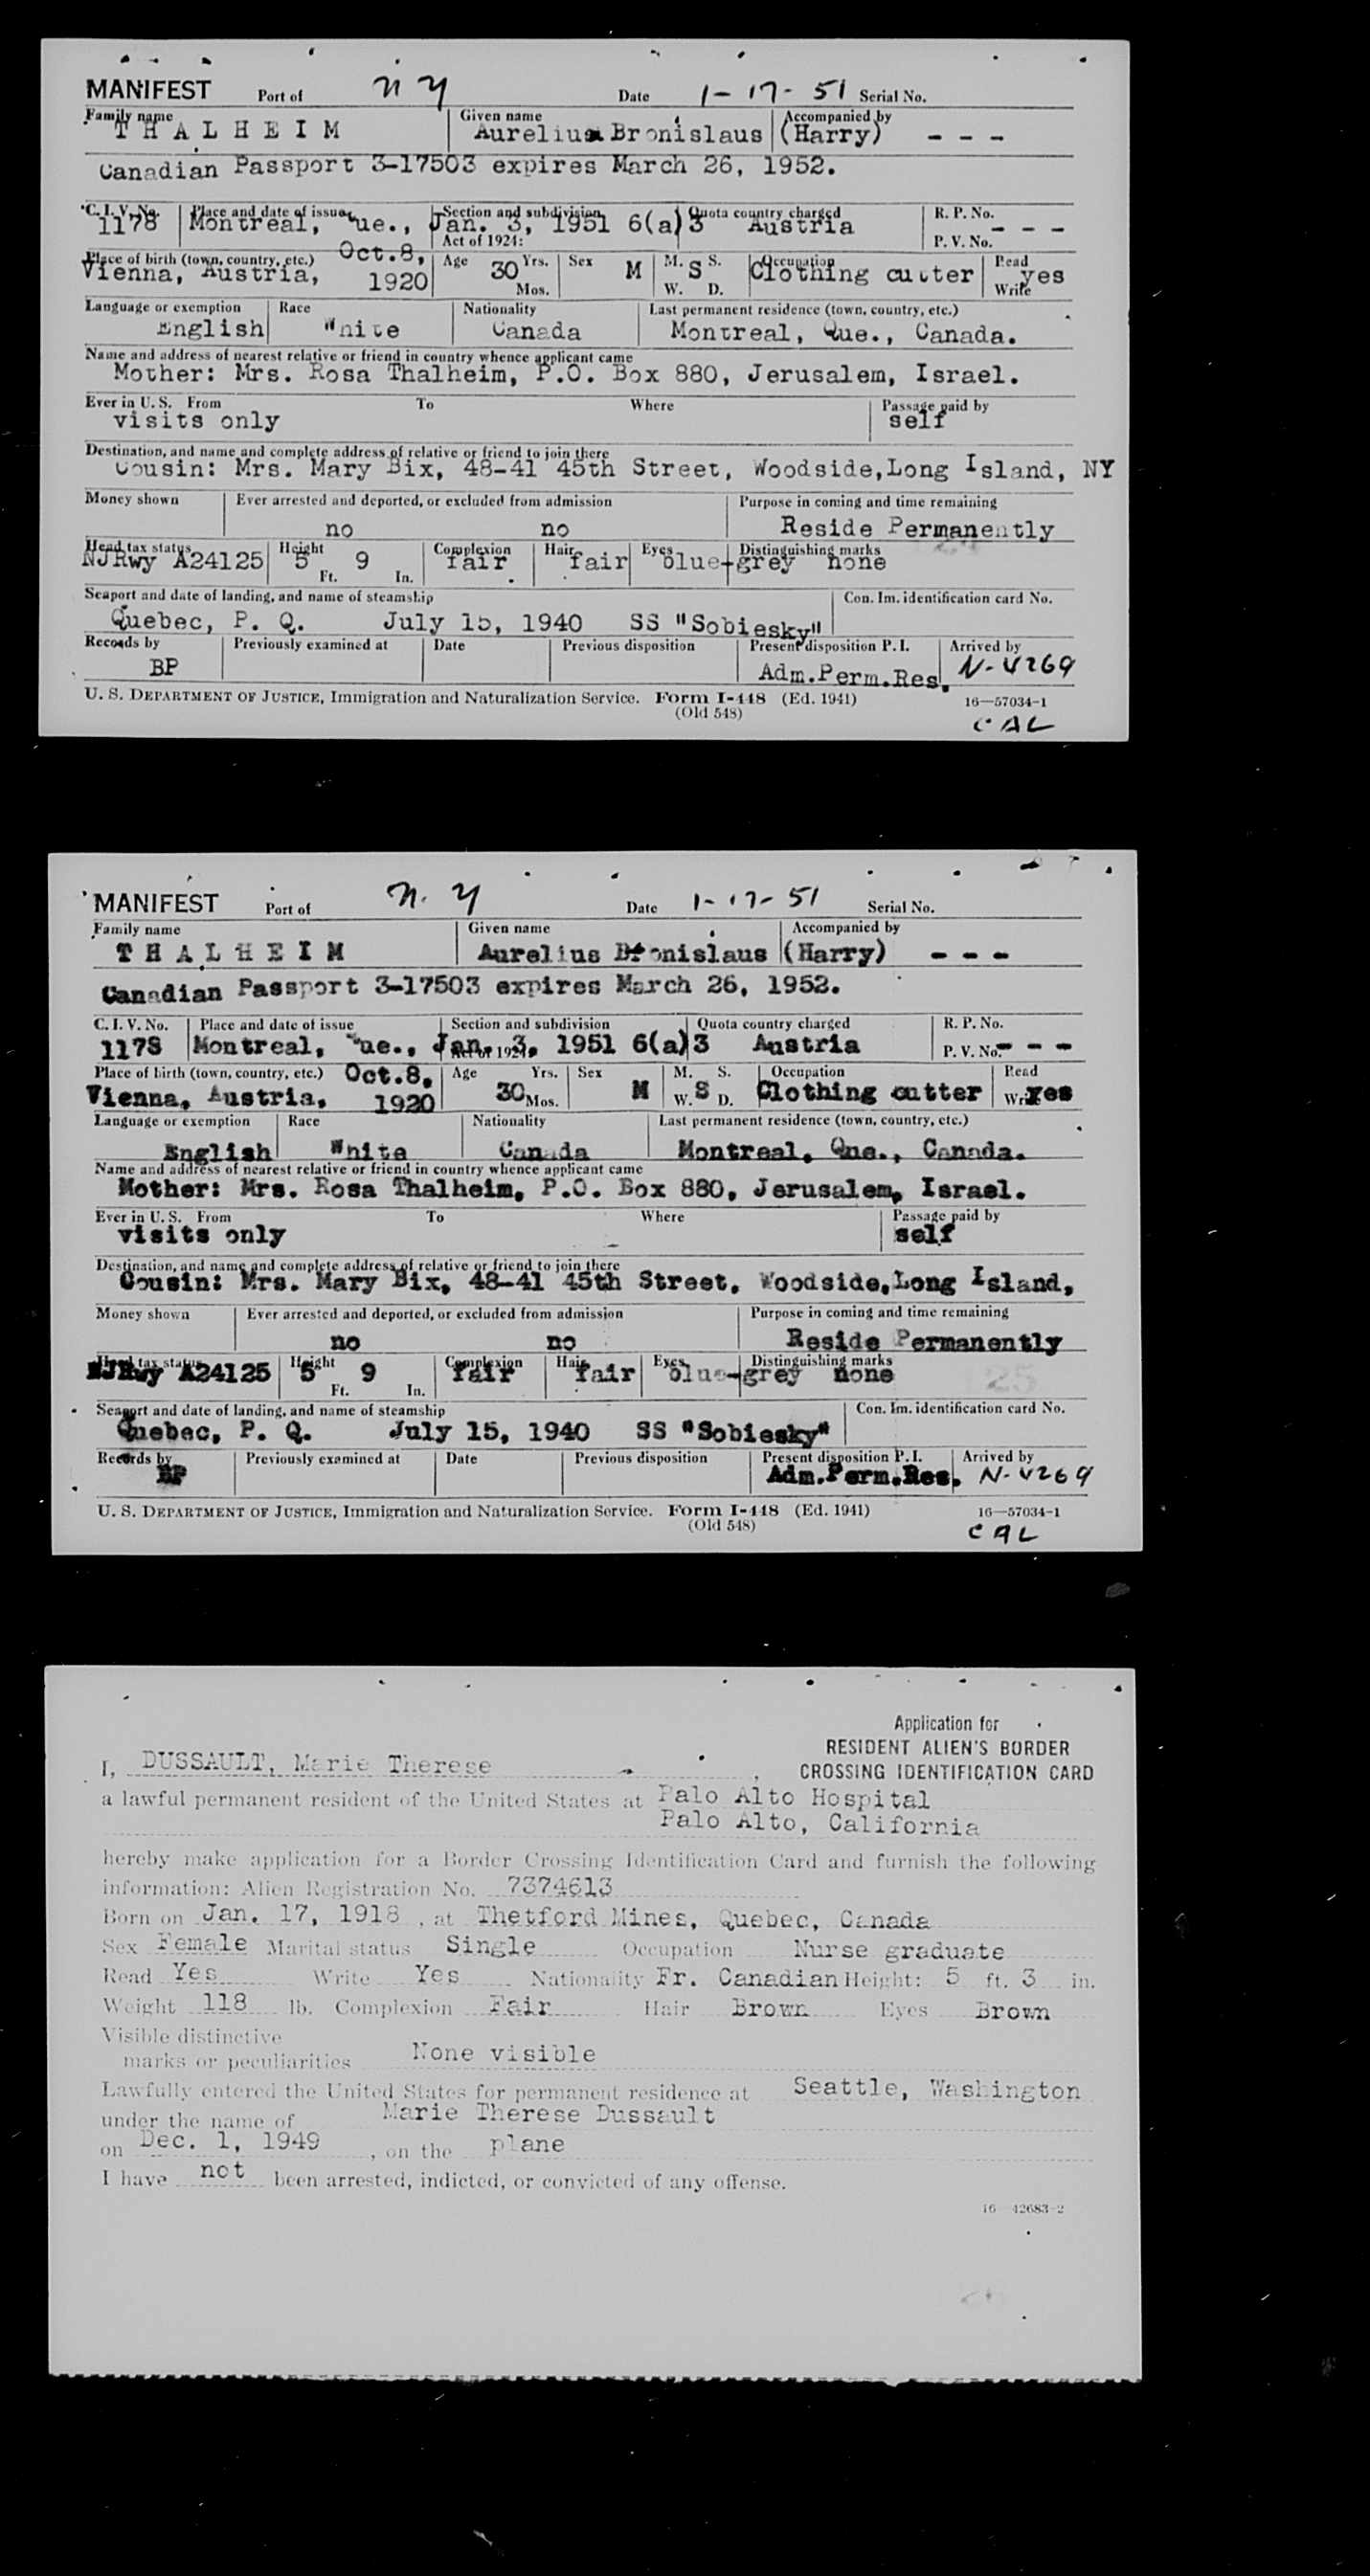 MANIFEST Port of N Y Date 1-17-51 Serial No.
Family name Given name Accompanied by
THALHEIM Aurelius Bronislaus (Harry) - - -
Canadian Passport 3-17503 expires March 26, 1952.
C. I. V. No. Place and date of issue Section and subdivision Quota country charged R. P. No.
1178 Montreal, Que., Jan. 3, 1951 6(a)3 Austria - - -
Act of 1924: P. V. No.
Place of birth (town, country, etc.) Oct.8, Age 30 Yrs. Sex M M. S. S Occupation Read
Vienna, Austria, 1920 Mos. W. D. Clothing cutter Write yes
Language or exemption Race Nationality Last permanent residence (town, country, etc.)
English White Canada Montreal, Que., Canada.
Name and address of nearest relative or friend in country whence applicant came
Mother: Mrs. Rosa Thalheim, P.O. Box 880, Jerusalem, Israel.
Ever in U. S. From To Where Passage paid by
visits only self
Destination, and name and complete address of relative or friend to join there
Cousin: Mrs. Mary Bix, 48-41 45th Street, Woodside,Long Island, NY
Money shown Ever arrested and deported, or excluded from admission Purpose in coming and time remaining
no no Reside Permanently
Head tax status Height Complexion Hair Eyes Distinguishing marks
NJRwy A24125 5 9 fair fair blue-grey none
Ft. In.
Seaport and date of landing, and name of steamship Con. Im. identification card No.
Quebec, P. Q. July 15, 1940 SS "Sobiesky"
Records by Previously examined at Date Previous disposition Present disposition P. I. Arrived by
BP Adm.Perm.Res. N-4269
U. S. DEPARTMENT OF JUSTICE, Immigration and Naturalization Service. Form I-448 (Ed. 1941) 16—57034-1
(Old 548) CAL
MANIFEST Port of N. Y Date 1-17-51 Serial No.
Family name Given name Accompanied by
THALHEIM Aurelius Bronislaus (Harry) - - -
Canadian Passport 3-17503 expires March 26, 1952.
C. I. V. No. Place and date of issue Section and subdivision Quota country charged R. P. No.
1178 Montreal, Que., Jan. 3, 1951 6(a)3 Austria - - -
Act of 1924: P. V. No.
Place of birth (town, country, etc.) Oct.8, Age 30 Yrs. Sex M M. S. S Occupation Read
Vienna, Austria, 1920 Mos. W. D. Clothing cutter Write yes
Language or exemption Race Nationality Last permanent residence (town, country, etc.)
English White Canada Montreal, Que., Canada.
Name and address of nearest relative or friend in country whence applicant came
Mother: Mrs. Rosa Thalheim, P.O. Box 880, Jerusalem, Israel.
Ever in U. S. From To Where Passage paid by
visits only self
Destination, and name and complete address of relative or friend to join there
Cousin: Mrs. Mary Bix, 48-41 45th Street, Woodside,Long Island,
Money shown Ever arrested and deported, or excluded from admission Purpose in coming and time remaining
no no Reside Permanently
Head tax status Height Complexion Hair Eyes Distinguishing marks
NJRwy A24125 5 9 fair fair blue-grey none
Ft. In.
Seaport and date of landing, and name of steamship Con. Im. identification card No.
Quebec, P. Q. July 15, 1940 SS "Sobiesky"
Records by Previously examined at Date Previous disposition Present disposition P. I. Arrived by
BP Adm.Perm.Res. N-4269
U. S. DEPARTMENT OF JUSTICE, Immigration and Naturalization Service. Form I-448 (Ed. 1941) 16—57034-1
(Old 548) CAL
Application for
RESIDENT ALIEN'S BORDER
CROSSING IDENTIFICATION CARD
I, DUSSAULT, Marie Therese,
a lawful permanent resident of the United States at Palo Alto Hospital
Palo Alto, California
hereby make application for a Border Crossing Identification Card and furnish the following
information: Alien Registration No. 7374613
Born on Jan. 17, 1918, at Thetford Mines, Quebec, Canada
Sex Female Marital status Single Occupation Nurse graduate
Read Yes Write Yes Nationality Fr. Canadian Height: 5 ft. 3 in.
Weight 118 lb. Complexion Fair Hair Brown Eyes Brown
Visible distinctive
marks or peculiarities None visible
Lawfully entered the United States for permanent residence at Seattle, Washington
under the name of Marie Therese Dussault
on Dec. 1, 1949, on the plane
I have not been arrested, indicted, or convicted of any offense.
16—42683-2